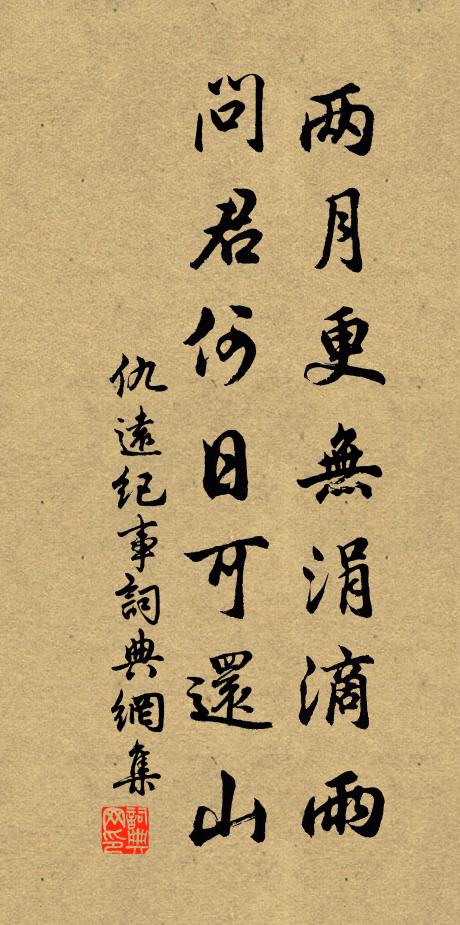 两月更無涓滴雨
問君何日可還山
仇遠紀事詞典網集
詞典网印